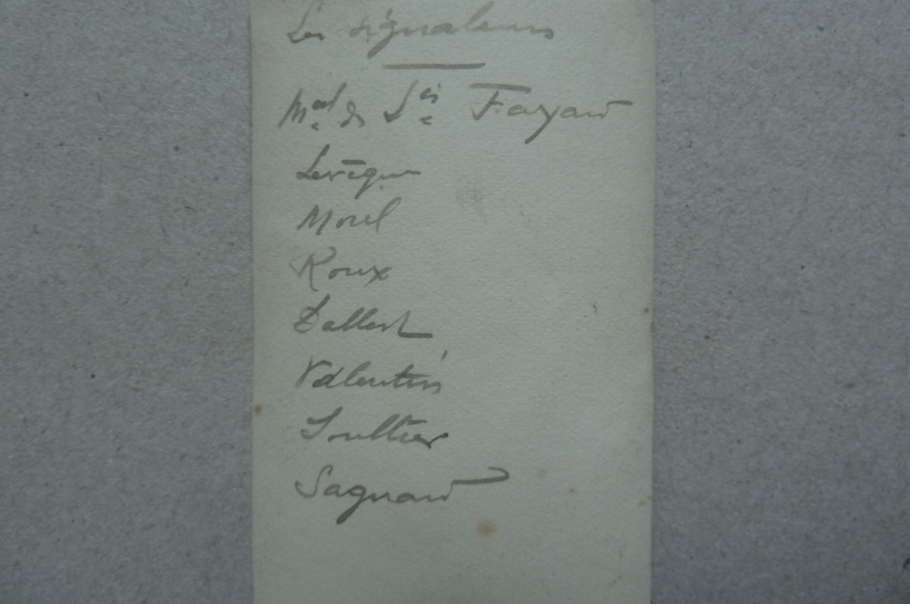 Les signaleurs
Mal des Lis Fayard
Levêque
Morel
Roux
Dallest
Valentin
Soultier
Sagnard